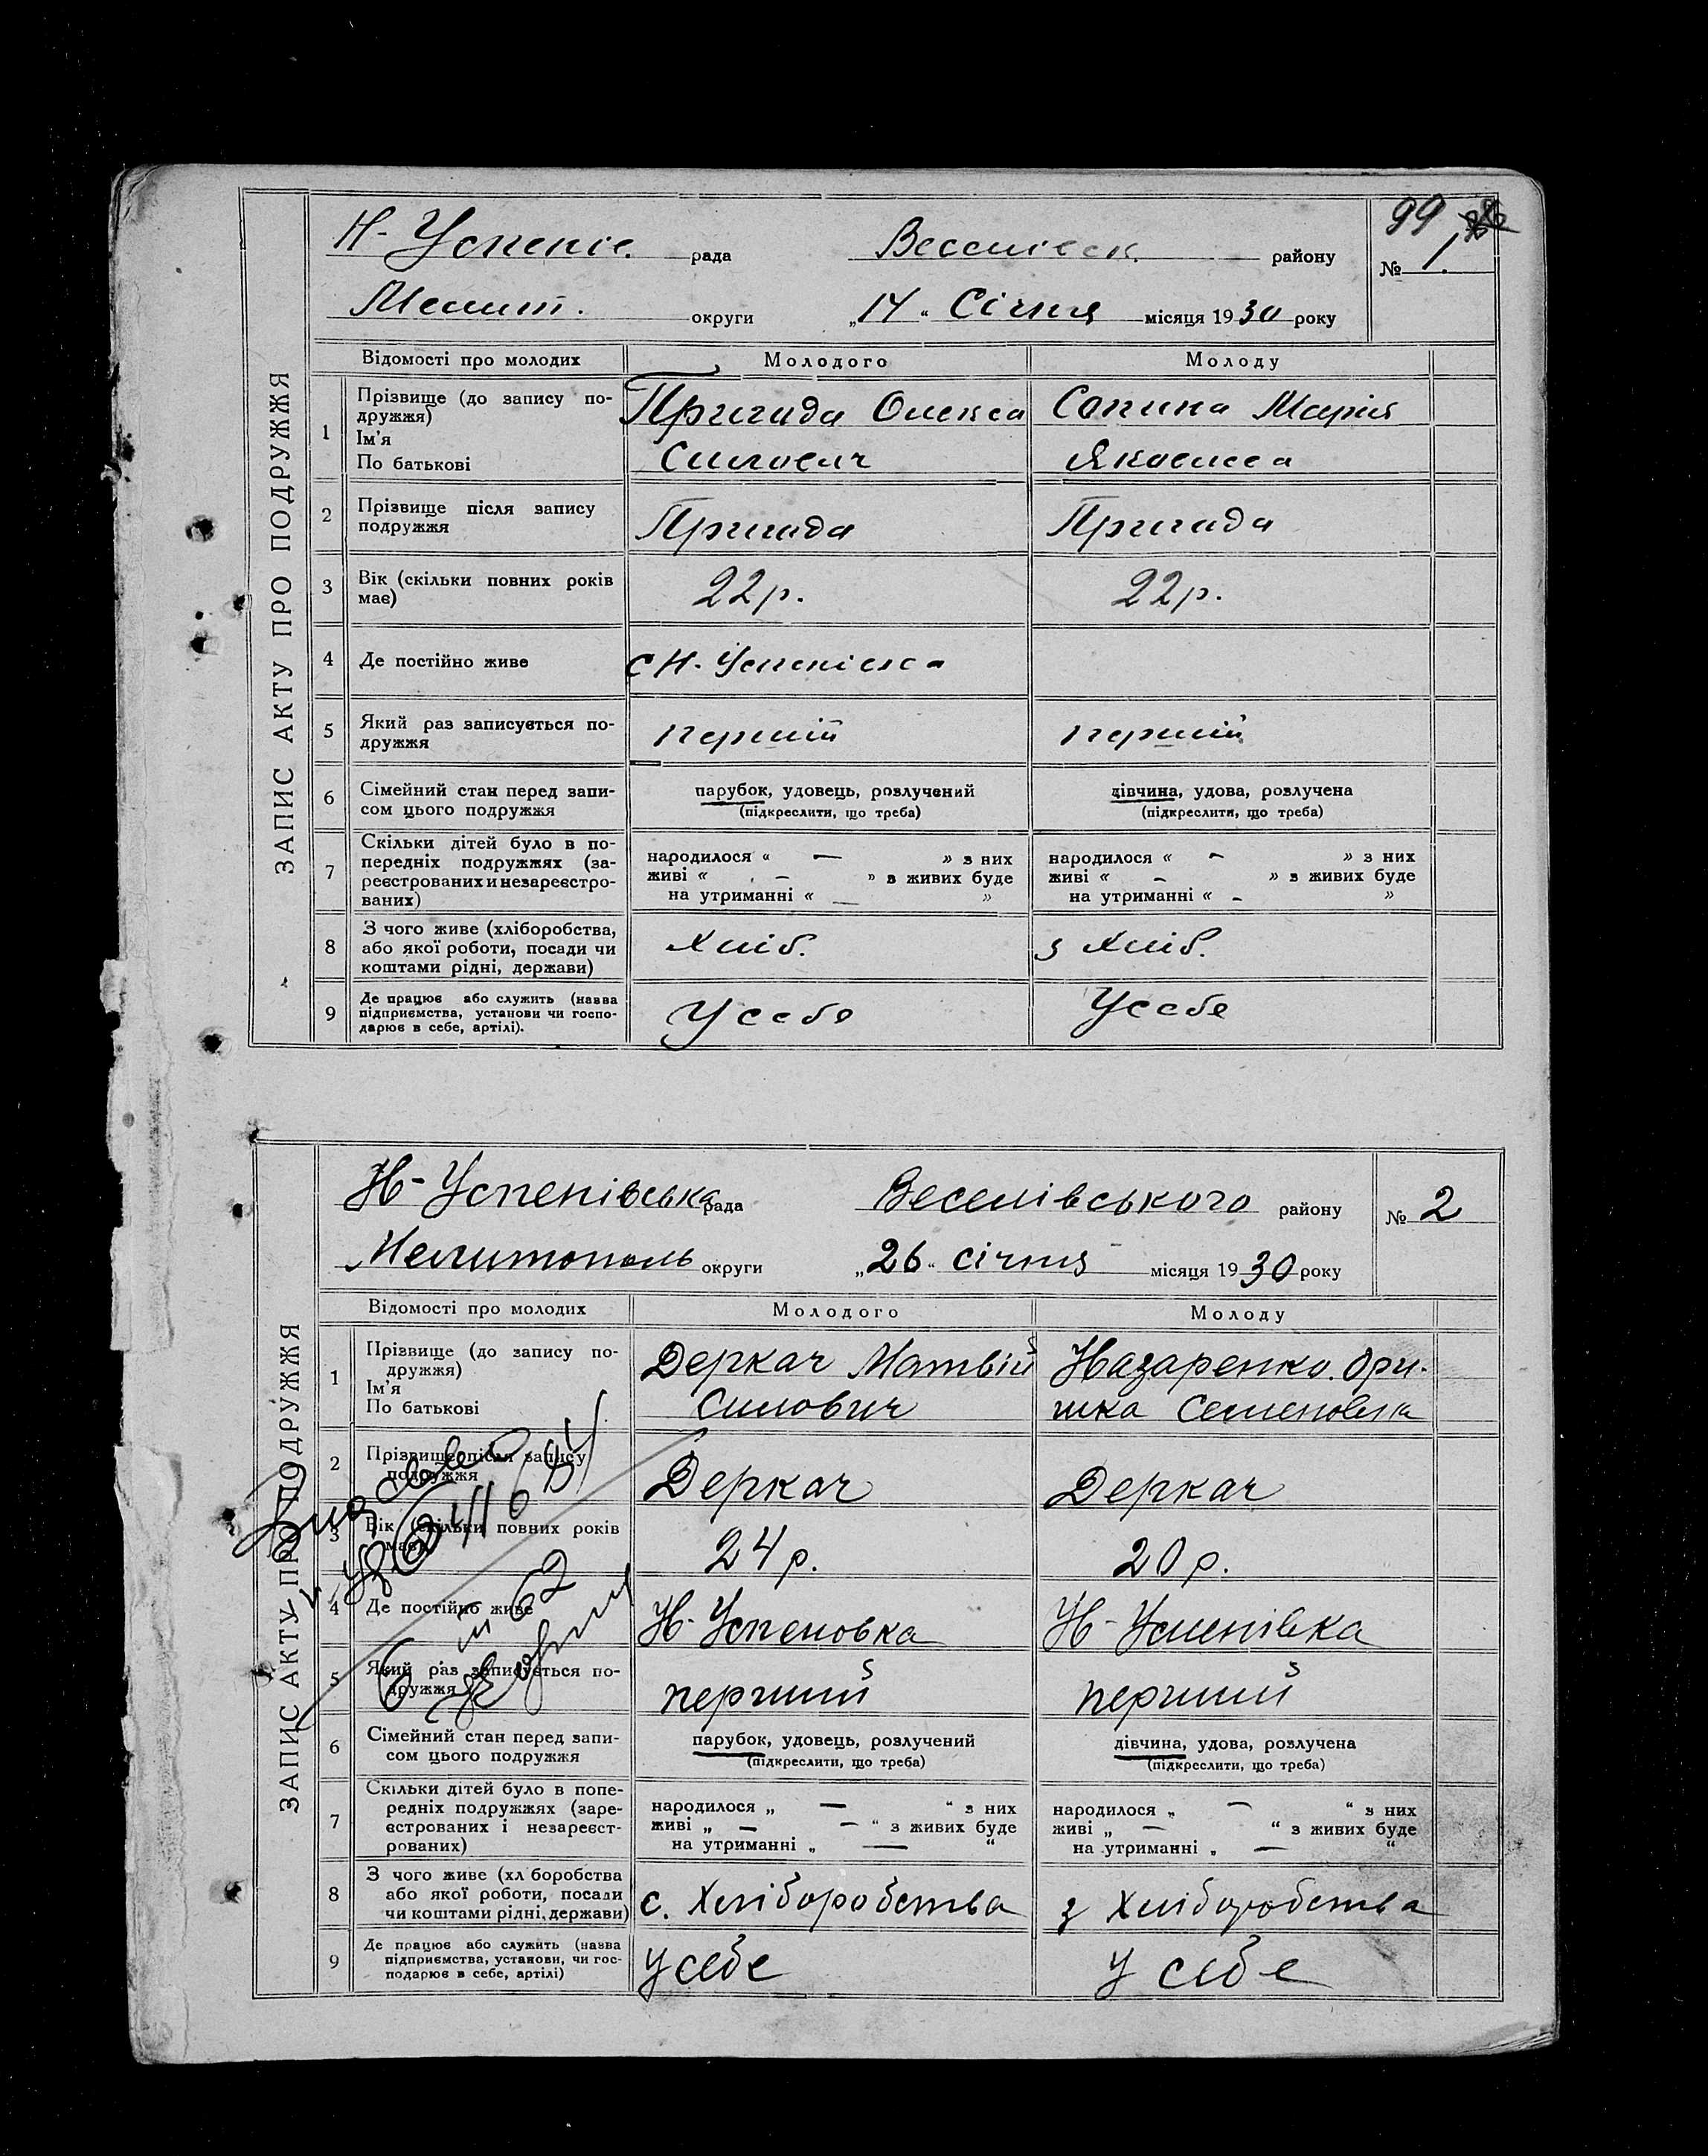 99
Н-Успенів. рада Веселівськ. району № 1.
Мелит. округи „14“ Січня місяця 1930 року
ЗАПИС АКТУ ПРО ПОДРУЖЖЯ
Відомості про молодих Молодого Молоду
1 Прізвище (до запису по-
дружжя)
Ім'я
По батькові
Пригида Олекса
Силович
Сопина Марія
Яковлевна
2 Прізвище після запису
подружжя
Пригида Пригида
3 Вік (скільки повних років
має)
22 р. 22 р.
4 Де постійно живе с Н-Успенівка
5 Який раз записується по-
дружжя
першій першій
6 Сімейний стан перед запи-
сом цього подружжя
парубок, удовець, розлучений
(підкреслити, що треба)
дівчина, удова, розлучена
(підкреслити, що треба)
7 Скільки дітей було в по-
передніх подружжях (за-
реєстрованих и незареєстро-
ваних)
народилося « — » з них
живі « — » з живих буде
на утриманні « — »
народилося « — » з них
живі « — » з живих буде
на утриманні « — »
8 З чого живе (хліборобства,
або якої роботи, посади чи
коштами рідні, держави)
Хліб. з Хліб.
9 Де працює або служить (назва
підприємства, установи чи госпо-
дарює в себе, артілі).
У себе У себе
Н-Успенівська рада Веселівського району № 2
Мелитополь округи „26“ січня місяця 1930 року
ЗАПИС АКТУ ПРО ПОДРУЖЖЯ
Відомості про молодих Молодого Молоду
1 Прізвище (до запису по-
дружжя)
Ім'я
По батькові
Деркач Матвій
Силович
Назаренко Ори-
шка Семеновна
2 Прізвище після запису
подружжя
Деркач Деркач
3 Вік (скільки повних років
має)
24 р. 20 р.
4 Де постійно живе
Н-Успеновка Н-Успенівка
5 Який раз записується по-
дружжя
перший перший
6 Сімейний стан перед запи-
сом цього подружжя
парубок, удовець, розлучений
(підкреслити, що треба)
дівчина, удова, розлучена
(підкреслити, що треба)
7 Скільки дітей було в попе-
редніх подружжях (заре-
єстрованих і незареєст-
рованих)
народилося „ — “ з них
живі „ — — “ з живих буде
на утриманні „ — “
народилося „ — “ з них
живі „ — “ з живих буде
на утриманні „ — “
8 З чого живе (хл боробства
або якої роботи, посади
чи коштами рідні, держави)
с. Хліборобства з Хліборобства
9 Де працює або служить (назва
підприємства, установи, чи гос-
подарює в себе, артілі)
У себе У себе